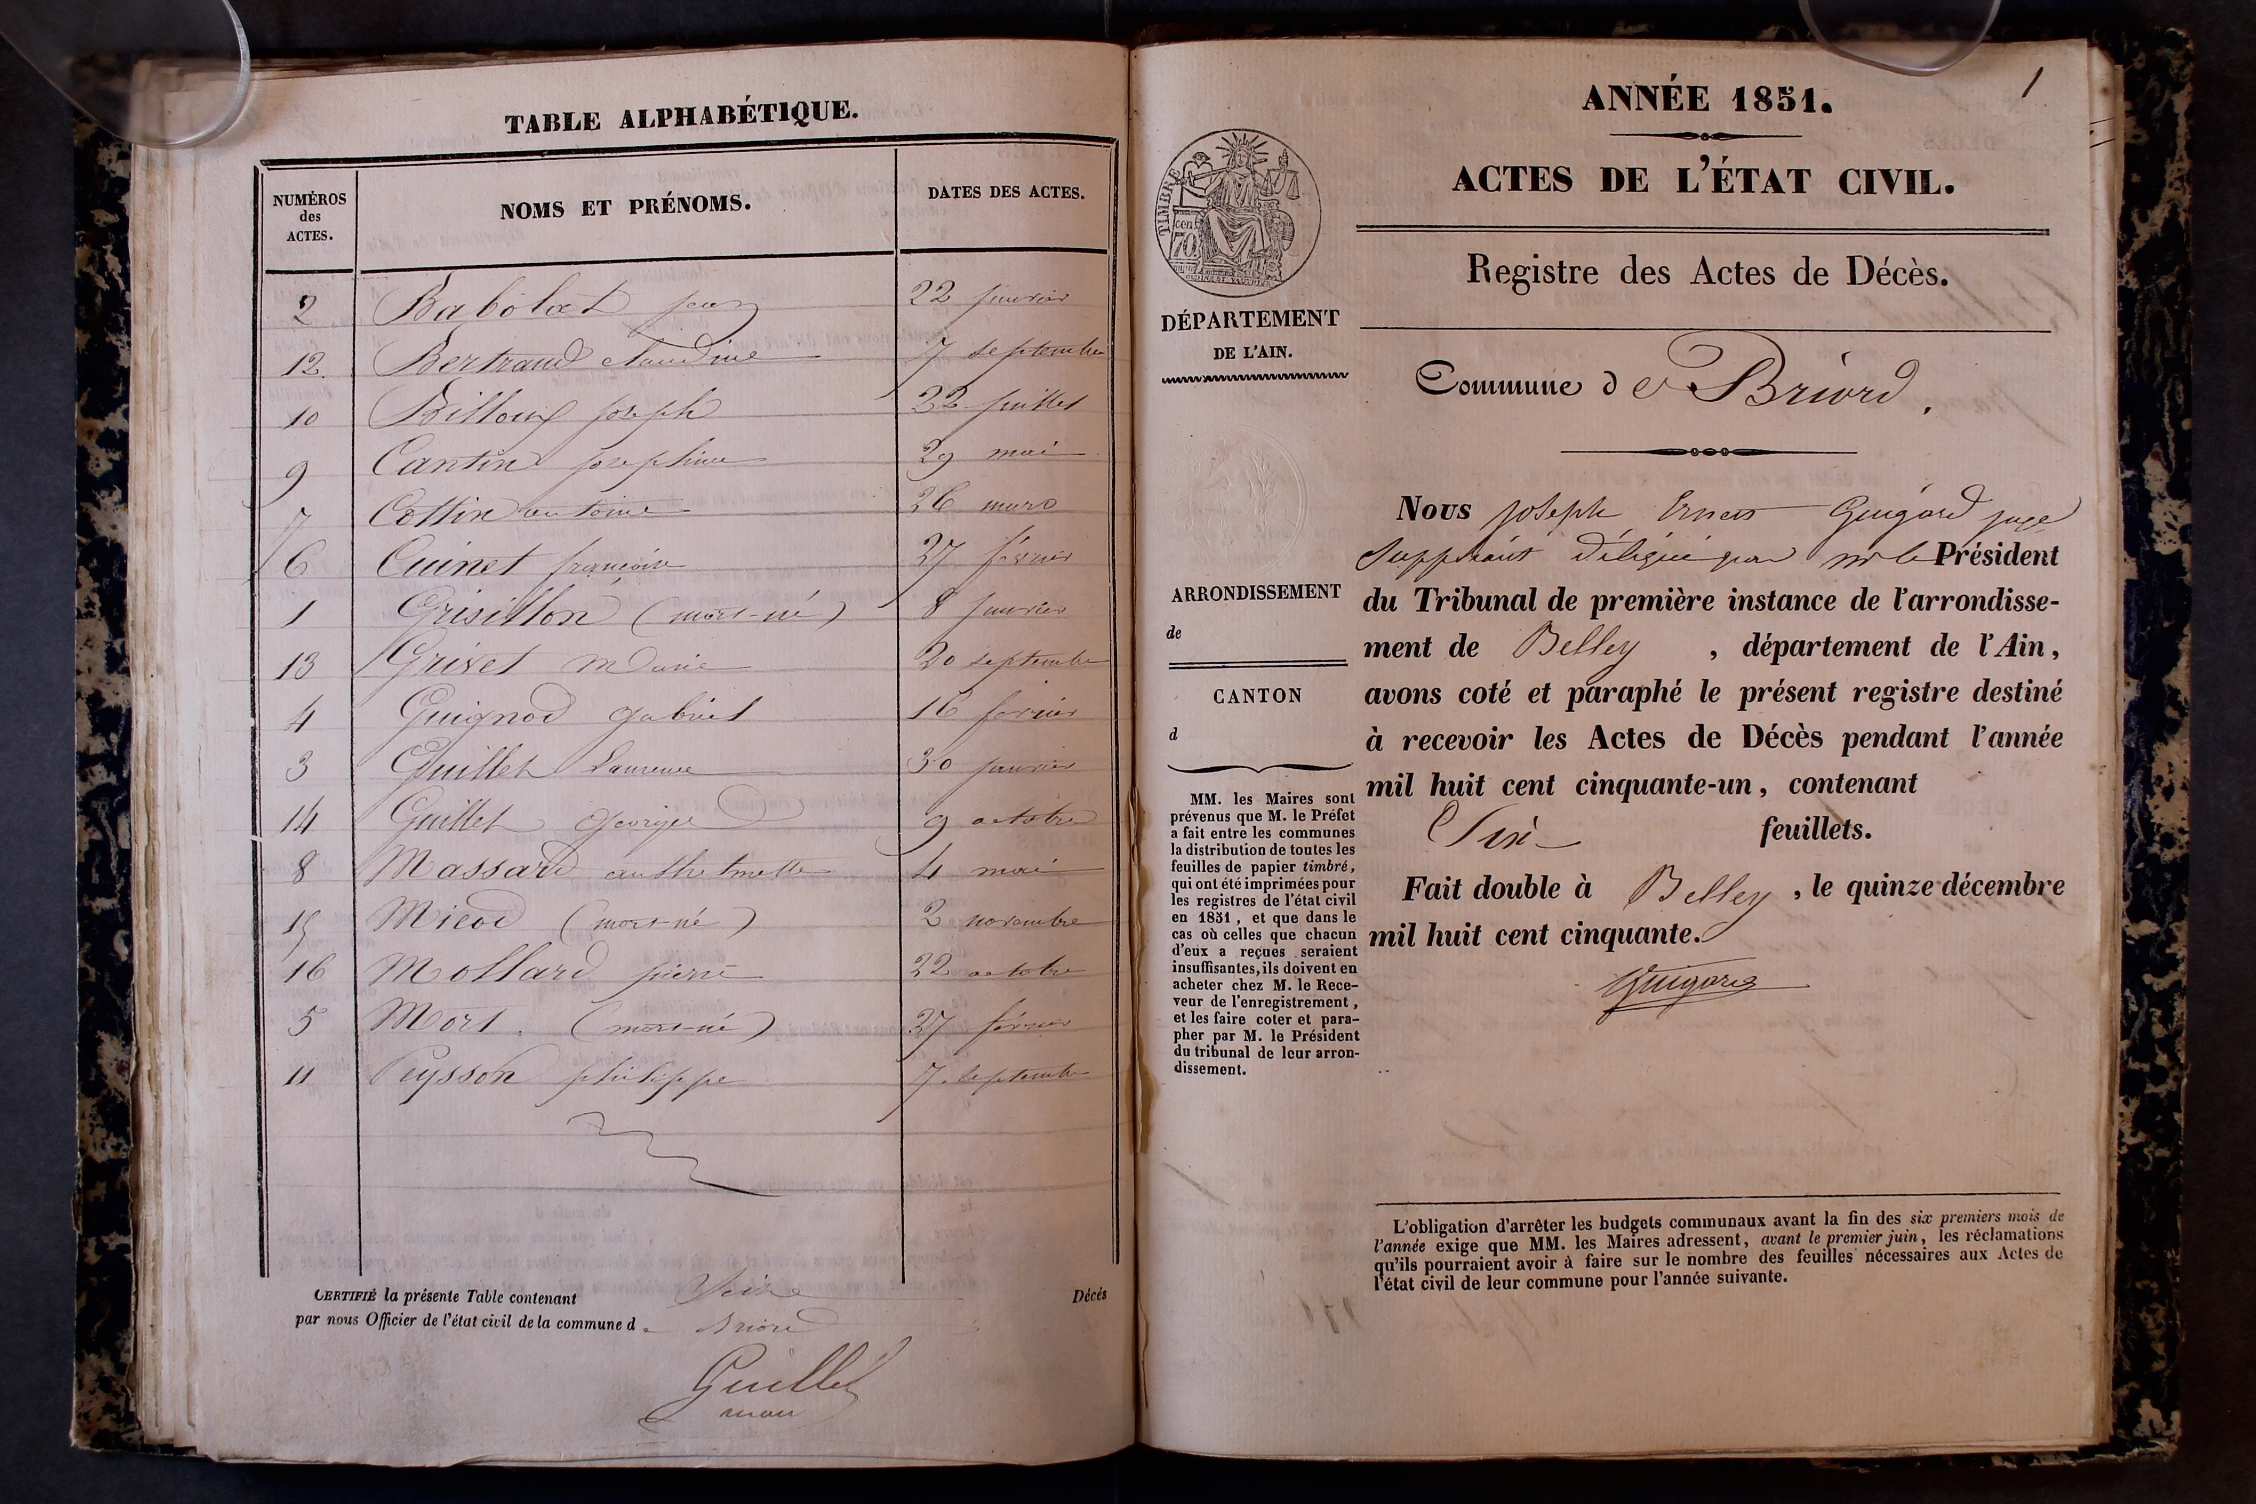 TABLE ALPHABÉTIQUE.
NUMÉROS des ACTES. NOMS ET PRÉNOMS. DATES DES ACTES.
2 Babolat jean 22 janvier
12. Bertrand claudine 7 septembre
10 Billoux joseph 22 juillet
9 Cantin josephine 29 mai
7 Cottin antoine 26 mars
6 Cuinet françoise 27 février
1 Grisillon (mort-né) 8 janvier
13 Grivet Marie 20 septembre
4 Guignod gabriel 16 février
3 Guillet Laurence 30 janvier
14 Guillet George 9 octobre
8 Massard 4 mai
15 Micod (mort-né) 2 novembre
16 Mollard pierre 22 octobre
5 Mort. (mort-né) 27 février
11 Peysson philippe 7 septembre
CERTIFIÉ la présente Table contenant Seize Décès
par nous Officier de l'état civil de la commune de Briord
Guillet
maire
1
ANNÉE 1851.
ACTES DE L'ÉTAT CIVIL.
Registre des Actes de Décès.
TIMBRE
70 cen
DÉPARTEMENT
DE L'AIN.
Commune de Briord.
ARRONDISSEMENT
de
CANTON
d
MM. les Maires sont
prévenus que M. le Préfet
a fait entre les communes
la distribution de toutes les
feuilles de papier timbré,
qui ont été imprimées pour
les registres de l'état civil
en 1851, et que dans le
cas où celles que chacun
d'eux a reçues seraient
insuffisantes, ils doivent en
acheter chez M. le Rece-
veur de l'enregistrement,
et les faire coter et para-
pher par M. le Président
du tribunal de leur arron-
dissement.
Nous joseph Ernest Guigard juge
suppléant délégué par mr le Président
du Tribunal de première instance de l'arrondisse-
ment de Belley, département de l'Ain,
avons coté et paraphé le présent registre destiné
à recevoir les Actes de Décès pendant l'année
mil huit cent cinquante-un, contenant
Six feuillets.
Fait double à Belley, le quinze décembre
mil huit cent cinquante.
Guigard
L'obligation d'arrêter les budgets communaux avant la fin des six premiers mois de
l'année exige que MM. les Maires adressent, avant le premier juin, les réclamations
qu'ils pourraient avoir à faire sur le nombre des feuilles nécessaires aux Actes de
l'état civil de leur commune pour l'année suivante.